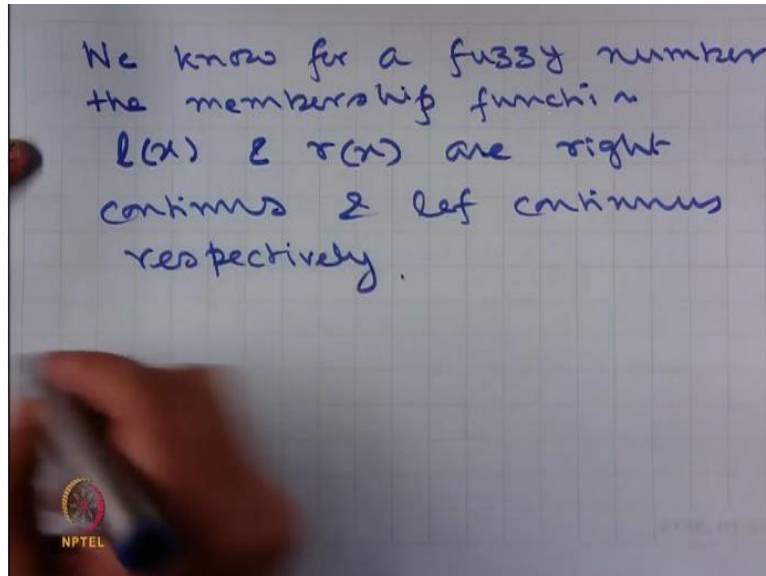 We know for a fuzzy number
the membership functin
l(x) & r(x) are right
continus & lef continuus
respectively.
NPTEL